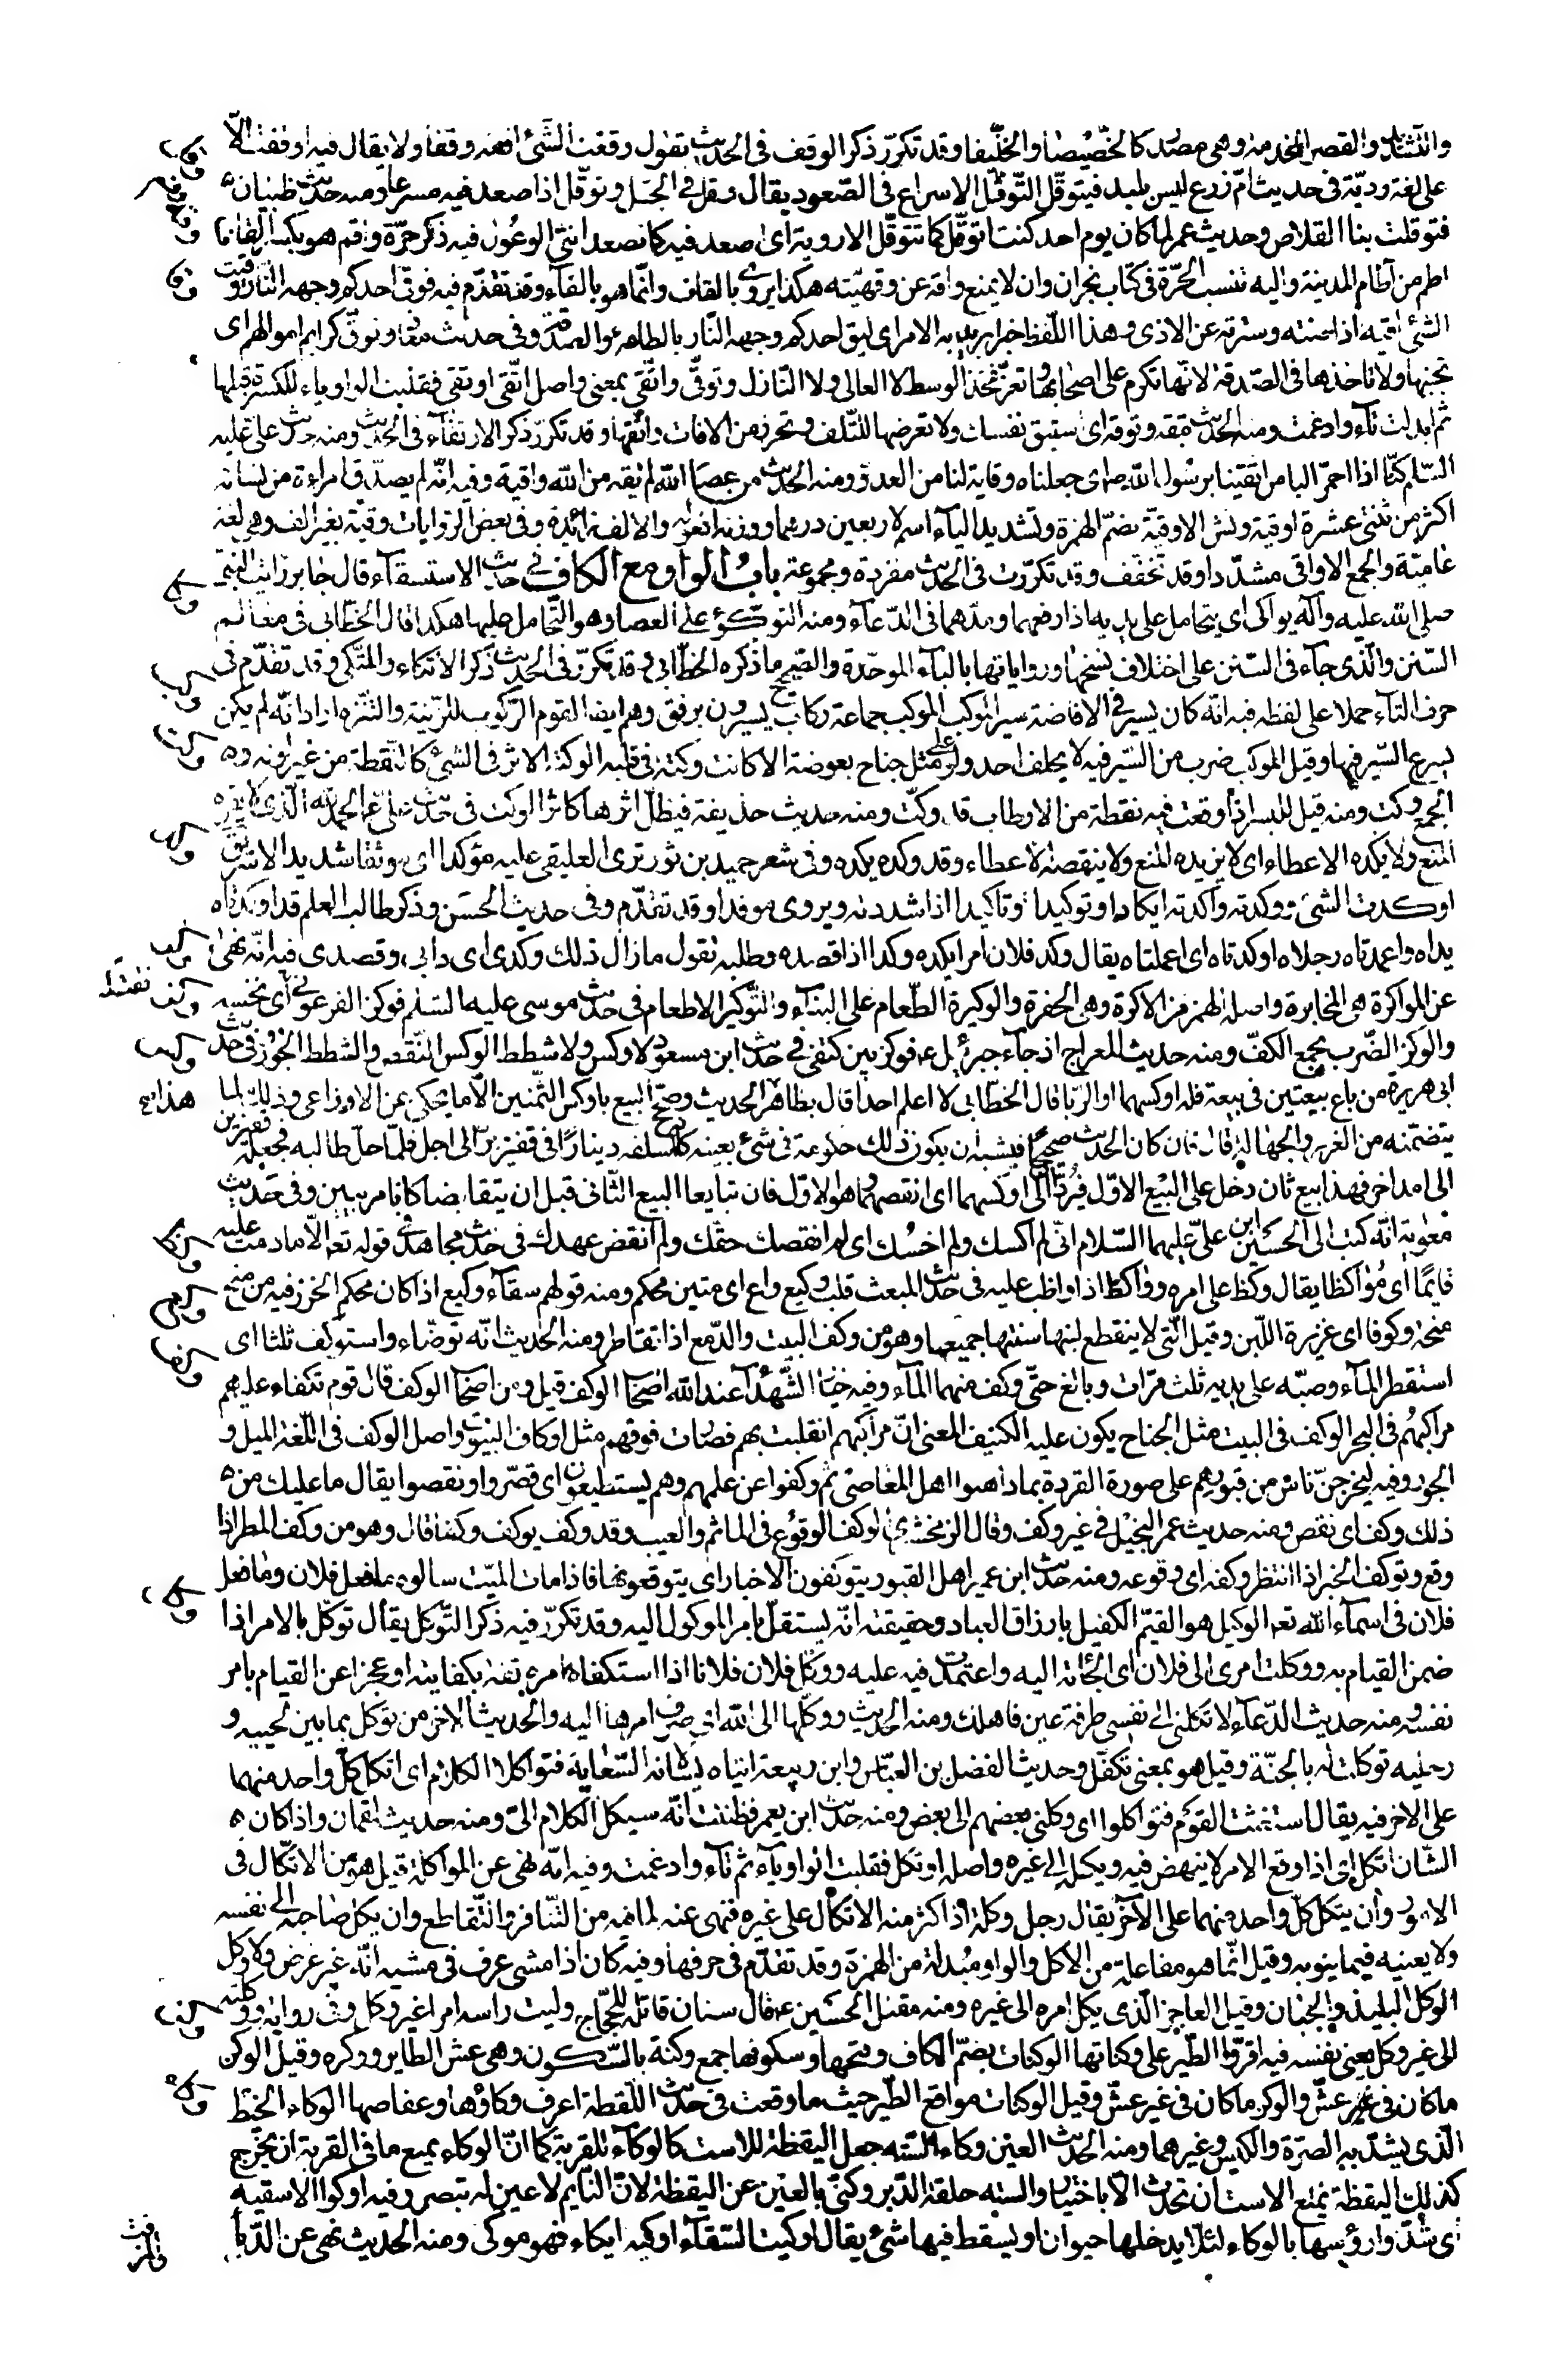 والتشديد والقصر الخدمة وهي مصدر كالخصيصا والخليفا وقد تكرر ذكر الوقف في الحديث تقول وقفت الشئ اقفه وقفا ولا يقال فيه اوقفت الا
على لغة ردية في حديث ام زرع ليس بلبد فيتوقل التوقل الاسراع في الصعود يقال وقل في الجبل وتوقل اذا صعد فيه مسرعا ومنه حديث ظبيان
فتوقلت بنا القلاص وحديث عمر لما كان يوم احد كنت اتوقل كما تتوقل الاروية اى اصعد فيه كما تصعد انثى الوعول فيه ذكر حرة واقم هو بكسر القاف
اطم من آطام المدينة واليه تنسب الحرة في كتاب نجران وان لا يمنع واقه عن وقهيته هكذا يروى بالقاف وانما هو بالفاء وقد تقدم فيه فوقى احدكم وجهه النار وقيت
الشئ اقيه اذا صنته وسترته عن الاذى وهذا اللفظ خبر اريد به الامر اى ليق احدكم وجهه النار بالطاعة والصدقة وفي حديث معاذ وتوق كرايم اموالهم اى
تجنبها ولا تاخذها في الصدقة لانها تكرم على اصحابها وتعز فخذ الوسط لا العالى ولا النازل وتوقى واتقى بمعنى واصل اتقى اوتقى فقلبت الواو ياء للكسرة قبلها
ثم ابدلت تاء وادغمت ومنه الحديث تبقه وتوقه اى استبق نفسك ولا تعرضها للتلف وتحرز من الافات واتقها وقد تكرر ذكر الاتقاء في الحديث ومنه حديث على عليه
السلم كنا اذا احمر الباس اتقينا برسول الله ص اى جعلناه وقاية لنا من العدو ومنه الحديث من عصا الله لم تقه من الله واقية وفيه انه لم يصدق امراءة من نسائه
اكثر من ثنتى عشرة اوقية ونش الاوقية بضم الهمزة وتشديد الياء اسم لاربعين درهما ووزنه افعولة والالف زائدة وفي بعض الروايات وقية بغير الف وهى لغة
عامية والجمع الاواقى مشددا وقد تخفف وقد تكررت في الحديث مفردة ومجموعة باب الواو مع الكاف في حديث الاستسقاء قال جابر رايت النبى
صلى الله عليه وآله يواكى اى يتحامل على يديه اذا رفعهما ومدهما في الدعاء ومنه التوكؤ على العصا وهو التحامل عليها هكذا قال الخطابى في معالم
السنن والذى جاء في السنن على اختلاف نسخها ورواياتها بالباء الموحدة والصحيح ما ذكره الخطابى وقد تكرر في الحديث ذكر الاتكاء والمتكى وقد تقدم في
حرف التاء حملا على لفظه فيه انه كان يسير في الافاضة سير الموكب الموكب جماعة ركاب يسيرون برفق وهم ايضا القوم الركوب للزينة والتنزه اراد انه لم يكن
يسرع السير فيها وقيل الموكب ضرب من السير فيه لا يحلف احد ولو على مثل جناح بعوضة الا كانت وكتة في قلبه الوكتة الاثر في الشئ كالنقطة من غير لونه
الجمع وكت ومنه قيل للبسر اذا وقعت فيه نقطة من الارطاب قد وكت ومنه حديث حذيفة فيظل اثرها كاثر الوكت في حديث على ع الحمد لله الذى لا يفره
المنع ولا يكده الاعطاء اى لا يزيده المنع ولا ينقصه الاعطاء وقد وكده يكده وفي شعر حميد بن ثور ترى العليفى عليه مؤكدا اى موثقا شديد الاسر
اوكدت الشئ ووكدته واكدته ايكادا وتوكيدا وتاكيدا اذا شددته ويروى موفدا وقد تقدم وفي حديث الحسن وذكر طالب العلم قد اوكدتاه
يداه واعمدتاه رجلاه اوكدتاه اى اعملتاه يقال وكد فلان امرا يكده وكدا اذا قصده وطلبه تقول ما زال ذلك وكدى اى دابى وقصدى فيه انه نهى
عن المواكرة هى المخابرة واصله الهمز من الاكرة وهى الحفرة والوكيرة الطعام على البناء والتوكير الاطعام في حديث موسى عليه السلم فوكز الفرعونى اى نخسه
والوكز الضرب بجمع الكف ومنه حديث المعراج اذ جاء جبرئيل ع فوكز بين كتفى في حديث ابن مسعود لا وكس ولا شطط الوكس النقص والشطط الجور في حديث
ابى هريرة من باع بيعتين في بيعة فله اوكسهما او الربا قال الخطابى لا اعلم احدا قال بظاهر الحديث وصحح البيع باوكس الثمنين الا ما يحكى عن الاوزاعى وذلك لما
يتضمنه من الغرر والجهالة قال فان كان الحديث صحيحا فيشبه ان يكون ذلك حكومة في شئ بعينه كان اسلفه دينارا في قفيز بر الى اجل فلما حل طالبه فجعله قفيزين
الى امد اخر فهذا بيع ثان دخل على البيع الاول فيرد الى اوكسهما اى انقصهما وهو الاول فان تبايعا البيع الثانى قبل ان يتقابضا كانا مربيين وفي حديث
معوية انه كتب الى الحسين ابن على عليهما السلام انى لم اكسك ولم اخسك اى لم انقصك حقك ولم انقض عهدك في حديث مجاهد في قوله تعه الا ما دمت عليه
قايما اى مواكظا يقال وكظ على امره وواكظ اذا واظب عليه في حديث المبعث قلب وكيع واع اى متين محكم ومنه قولهم سقاء وكيع اذا كان محكم الخرز فيه من منح
منحة وكوفا اى غزيرة اللبن وقيل التى لا ينقطع لبنها سنتها جميعها وهو من وكف البيت والدمع اذا تقاطر ومنه الحديث انه توضاء واستوكف ثلثا اى
استقطر الماء وصبه على يديه ثلث مرات وبالغ حتى وكف منهما الماء وفيه خيار الشهداء عند الله اصحاب الوكف قيل ومن اصحاب الوكف قال قوم تكفاء عليهم
مراكبهم في البحر الوكف في البيت مثل الجناح يكون عليه الكنيف المعنى ان مراكبهم انقلبت بهم فصارت فوقهم مثل اوكاف البيوت واصل الوكف في اللغة الميل و
الجور وفيه ليخرجن ناس من قبورهم على صورة القردة بما داهنوا اهل المعاصى ثم وكفوا عن علمهم وهم يستطيعون اى قصروا ونقصوا يقال ما عليك من
ذلك وكف اى نقص ومنه حديث عمر البخيل في غير وكف وقال الزمخشرى الوكف الوقوع في الماثم والعيب وقد وكف يوكف وكفا قال وهو من وكف المطر اذا
وقع وتوكف الخبر اذا انتظر وكفه اى وقوعه ومنه حديث ابن عمير اهل القبور يتوكفون الاخبار اى يتوقعونها فاذا مات الميت سالوه ما فعل فلان وما فعل
فلان في اسماء الله تعه الوكيل هو القيم الكفيل بارزاق العباد وحقيقته انه يستقل بامر الموكول اليه وقد تكرر فيه ذكر التوكل يقال توكل بالامر اذا
ضمن القيام به ووكلت امرى الى فلان اى الجاته اليه واعتمدت فيه عليه ووكل فلان فلانا اذا استكفاه امره ثقة بكفايته او عجزا عن القيام بامر
نفسه ومنه حديث الدعاء لا تكلنى الى نفسى طرفة عين فاهلك ومنه الحديث ووكلها الى الله اى صرف امرها اليه والحديث الاخر من توكل بما بين لحييه و
رجليه توكلت له بالجنة وقيل هو بمعنى تكفل وحديث الفضل بن العباس وابن ربيعة اتياه يسئلانه السعاية فتواكلا الكلام اى اتكل كل واحد منهما
على الاخر فيه يقال استغثت القوم فتواكلوا اى وكلنى بعضهم الى بعض ومنه حديث ابن يعمر فظننت انه سيكل الكلام الى ومنه حديث لقمان واذا كان
الشان اتكل اى اذا وقع الامر لا ينهض فيه ويكله الى غيره واصله اوتكل فقلبت الواو ياء ثم تاء وادغمت وفيه انه نهى عن المواكلة قيل هو من الاتكال في
الامور وان يتكل كل واحد منهما على الآخر يقال رجل وكلة اذا كثر منه الاتكال على غيره فنهى عنه لما فيه من التنافر والتقاطع وان يكل صاحبه الى نفسه
ولا يعينه فيما ينوبه وقيل انما هو مفاعلة من الاكل والواو مبدلة من الهمزة وقد تقدم في حرفها وفيه كان اذا مشى عرف في مشيه انه غير غرض ولا وكل
الوكل البليد والجبان وقيل العاجز الذى يكل امره الى غيره ومنه مقتل الحسين ع قال سنان قاتله للحجاج وليت راسه امرا غير وكل وفي رواية وكلته
الى غير وكل يعنى نفسه فيه اقروا الطير على وكناتها الوكنات بضم الكاف وفتحها وسكونها جمع وكنة بالسكون وهى عش الطاير ووكره وقيل الوكن
ما كان في غير عش والوكر ما كان في غير عش وقيل الوكنات مواقع الطير حيث ما وقعت في حديث اللقطة اعرف وكاؤها وعفاصها الوكاء الخيط
الذى يشد به الصرة والكيس وغيرهما ومنه الحديث العين وكاء السته جعل اليقظة للاست كالوكاء للقربة كما ان الوكاء يمنع ما في القربة ان يخرج
كذلك اليقظة تمنع الاست ان تحدث الا باختيار والسته حلقة الدبر وكنى بالعين عن اليقظة لان النايم لا عين له تبصر وفيه اوكوا الاسقية
اى شدوا رؤسها بالوكاء لئلا يدخلها حيوان او يسقط فيها شئ يقال اوكيت السقاء اوكيه ايكاء فهو موكى ومنه الحديث نهى عن الدبا